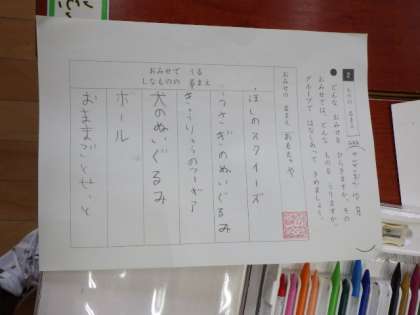 2
ものの 名まえ
● どんな おみせを ひらきますか。その
おみせでは、どんな ものを うりますか。
グループで はなしあって きめましょう。
おみせの 名まえ おもちゃや
おみせで うる
しなものの 名まえ
ほしのスクイーズ
うさぎのぬいぐるみ
犬のぬいぐるみ
ボール
おままごとせっと